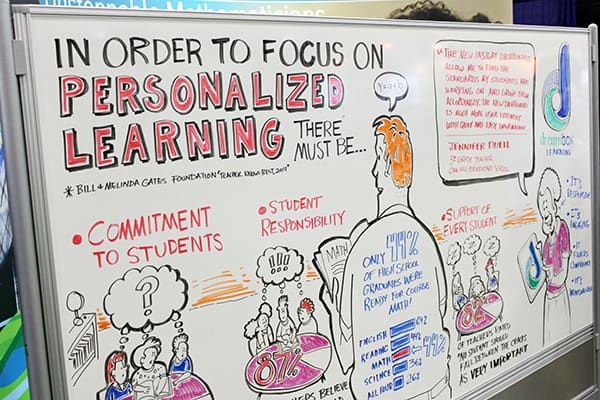 Unstoppable Mathematicians
IN ORDER TO FOCUS ON
PERSONALIZED
LEARNING THERE
MUST BE...
* BILL & MELINDA GATES FOUNDATION "TEACHER KNOWS BEST, 2014"
• COMMITMENT
TO STUDENTS
?
• STUDENT
RESPONSIBILITY
!!!
87%
BELIEVE
y=a+b
MATH
ONLY 44%
OF HIGH SCHOOL
GRADUATES WERE
READY FOR COLLEGE
MATH!
ENGLISH 64%
READING
MATH 44%
SCIENCE 36%
ALL FOUR 26%
"THE NEW INSIGHT DASHBOARDS
ALLOW ME TO FIND THE
STANDARDS MY STUDENTS ARE
WORKING ON AND GROUP THEM
ACCORDINGLY. THE NEW DASHBOARD
IS MUCH MORE USER FRIENDLY
WITH QUICK AND EASY INFORMATION"
JENNIFER DUELL
GRADE TEACHER
ELEMENTARY SCHOOL
dreambox
LEARNING
• SUPPORT OF
EVERY STUDENT
82%
OF TEACHERS RATED
"NO STUDENT SHOULD
FALL BETWEEN THE CRACKS"
AS VERY IMPORTANT
• IT'S
RESPONSIVE
• IT'S
ENGAGING
• IT
BUILDS
CONFIDENCE
• IT'S